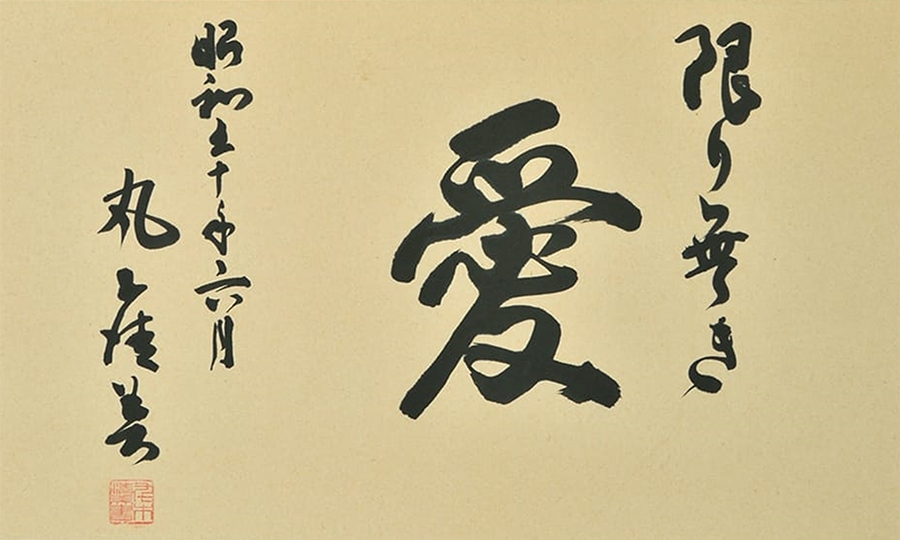 限り無き
愛
昭和五十年六月
丸